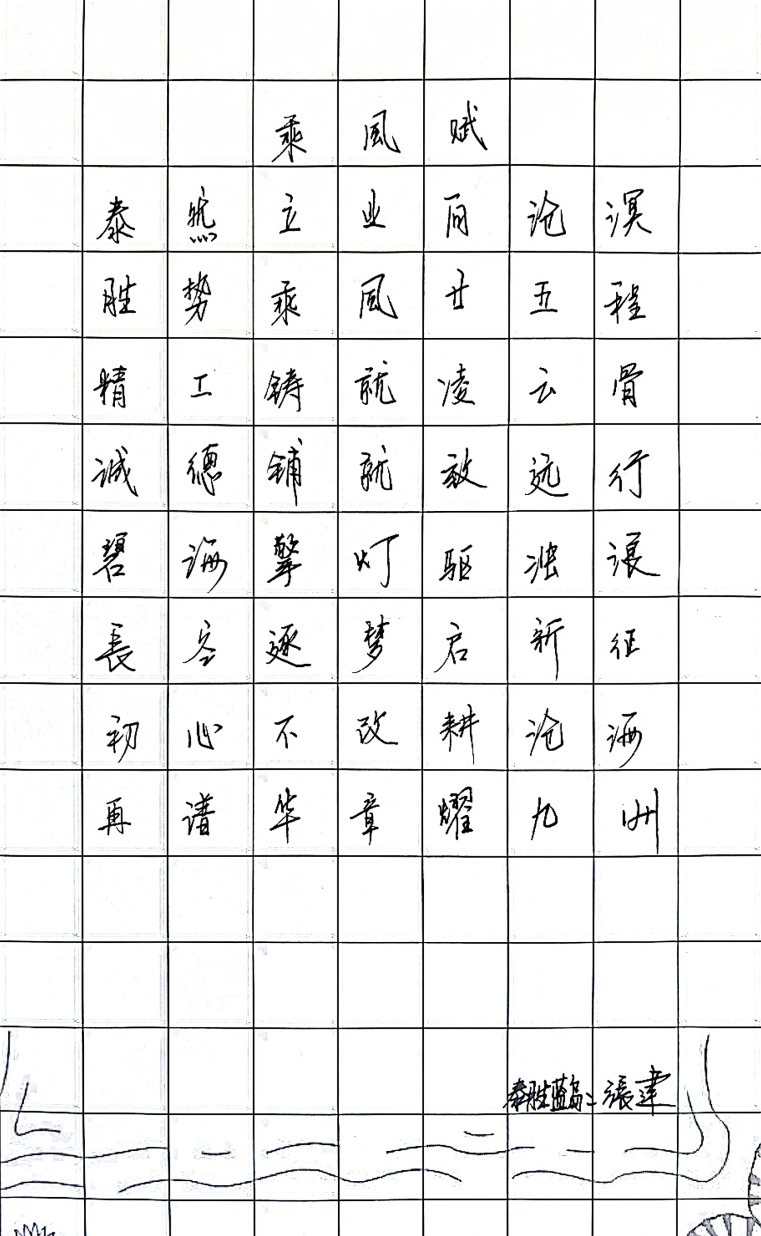 乘風赋
泰然立业向沧溟
胜势乘風廿五程
精工铸就凌云骨
诚德铺就放远行
碧海擎灯驱浊浪
長空逐梦启新征
初心不改耕沧海
再谱华章耀九州
泰胜蓝岛 張建